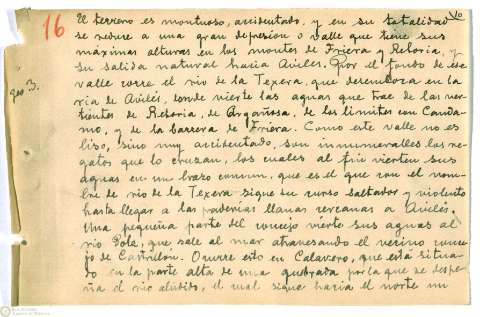 16
10
geo 3.
El terreno es montuoso, accidentado, y en su totalidad
se reduce a una gran depresion o valle que tiene sus
máximas alturas en los montes de Friera y Retoria, y
su salida natural hacia Aviles. Por el fondo de ese
valle corre el rio de la Texera, que desemboca en la
ria de Avilés, donde vierte las aguas que trae de las ver-
tientes de Retoria, de Argañosa, de los limites con Canda-
mo, y de la barrera de Friera. Como este valle no es
liso, sino muy accidentado, son innumerables los re-
gatos que lo cruzan, los cuales al fin vierten sus
aguas en un brazo comun, que es el que con el nom-
bre de rio de la Texera sigue su curso saltador y violento
hasta llegar a las praderías llanas cercanas a Avilés.
Una pequeña parte del concejo vierte sus aguas al
rio Gola, que sale al mar atravesando el vecino conce-
jo de Castrillon. Ocurre esto en Calavero, que está situa-
do en la parte alta de una quebrada por la que se despe-
ña el rio aludido, el cual sigue hacia el norte un